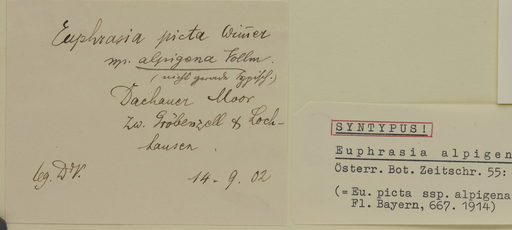 Euphrasia picta Wimmer
ssp. alpigena Vollm.
(nicht gerade typisch.)
Dachauer Moor
zw. Gröbenzell & Loch-
hausen.
leg. Dr V. 14-9.02
SYNTYPUS!
Euphrasia alpigen
Österr. Bot. Zeitschr. 55:
(= Eu. picta ssp. alpigena
Fl. Bayern, 667. 1914)